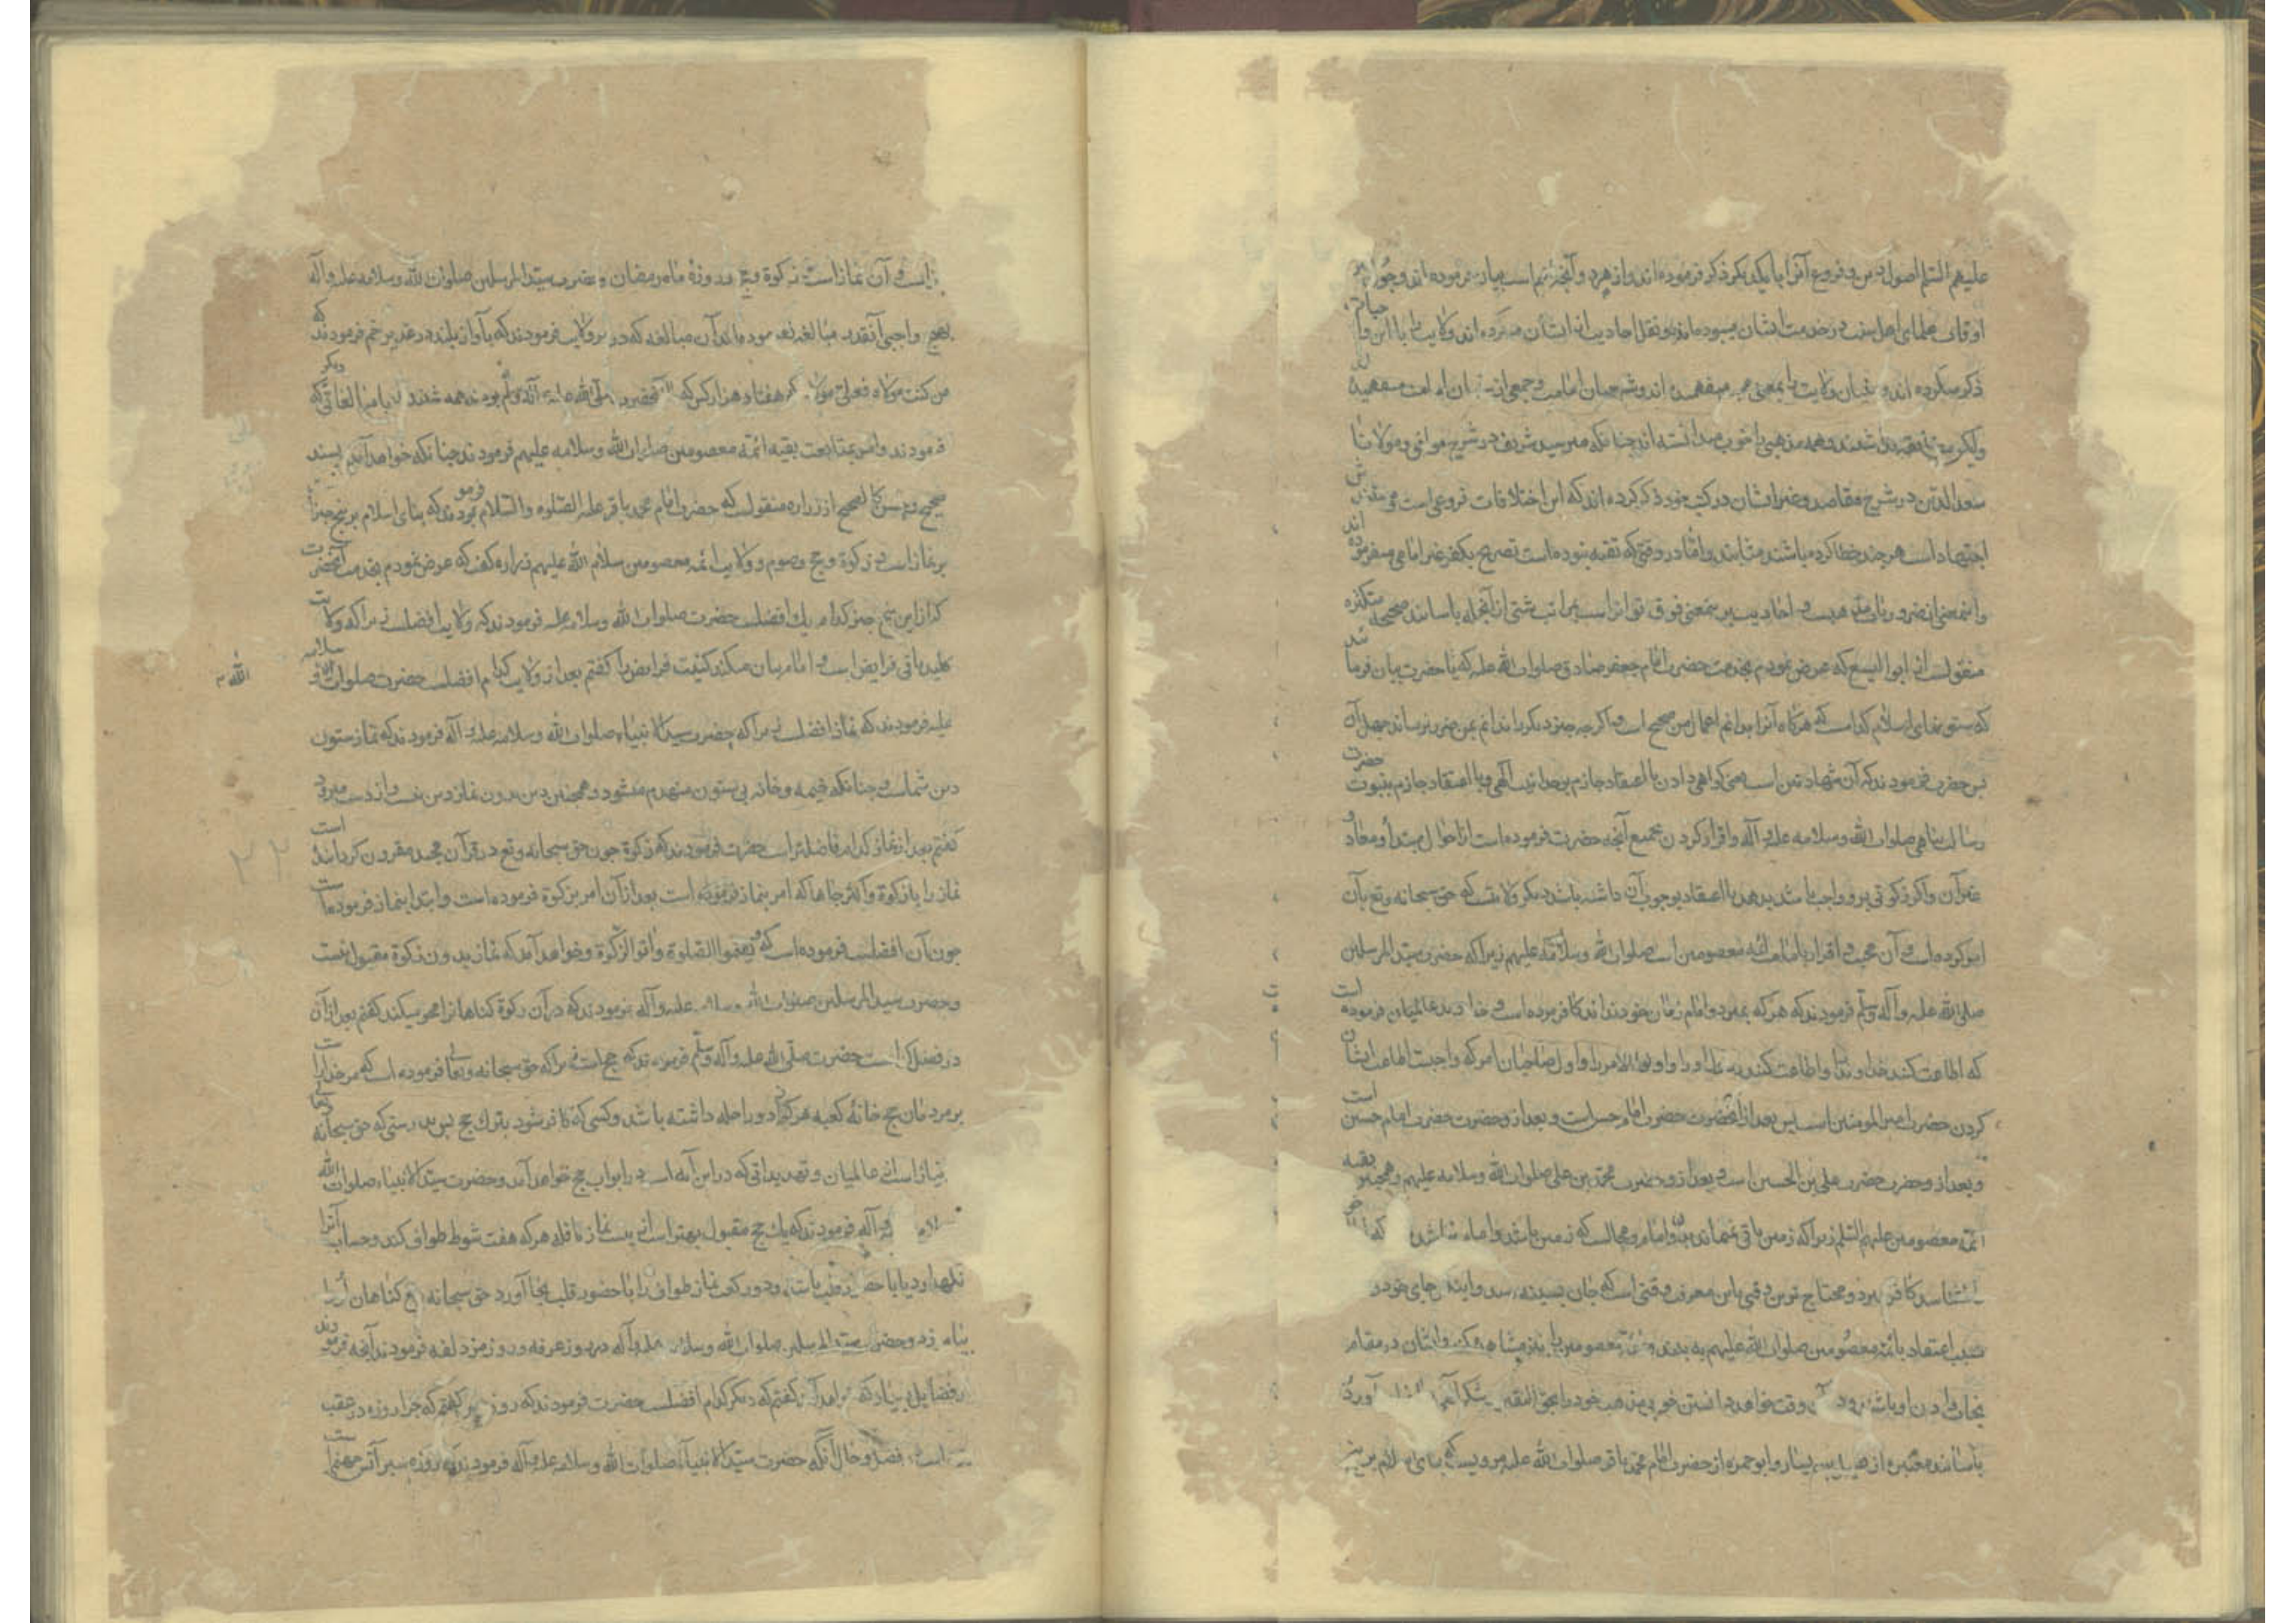 علیهم السلم اصول دین و فروع آنرا با یکدیکر ذکر فرموده اند و از هر دو آنچه اهم است بیان فرموده اند و چون اکثر
اوقات علمای اهل سنت در خدمت ایشان میبوده اند و نقل احادیث از ایشان میکرده اند ولایت را با این
ذکر میکرده اند و سنیان ولایت را بمعنی محبت میفهمیده اند و شیعیان امامت و جمعی از ایشان امامت میفهمیده
ولیکن
سعد الدین در شرح مقاصد و غیر ایشان در کتب خود ذکر کرده اند که این اختلافات فروعی است
اجتهاد است هر چند خطا کرده باشند مثابند و اما در وقتی که تقیه نبوده است تصریح بکفر غیر امامی میفرموده اند
و اینمعنی از ضروریات مذهبست و احادیث بر اینمعنی فوق تواترست بمراتب شتی از آنجمله باسانید صحیحه متکثره
منقولست از ابو الیسع که عرض نمودم بخدمت حضرت امام جعفر صادق صلوات الله علیه که یا حضرت بیان فرمائید
که ستونهای اسلام کدامست که هرکاه آنرا بدانم اعمال من صحیح است و اکرچه چیز دیکر را ندانم بمن ضرر نرساند جهل آن
پس حضرت فرمودند که آن شهادتین است یعنی کواهی دادن با اعتقاد جازم بوحدانیت آلهی و با اعتقاد جازم بنبوت حضرت
رسالت پناهی صلوات الله و سلامه علیه و آله و اقرار کردن بجمیع آنچه حضرت فرموده است از احوال مبتدأ و معاد و
غیر آن و اکر زکوتی برو واجب باشد بدهد با اعتقاد بوجوب آن داشته باشد دیکر ولایتست که حق سبحانه و تع بآن
امر کرده است و آن محبت و اقرار بامامت ائمه معصومین است صلوات الله و سلامه علیهم زیرا که حضرت سید المرسلین
صلی الله علیه و آله و سلم فرمودند که هر که بمیرد و امام زمان خود نداند کافر مرده است و خداوند عالمیان فرموده است
که اطاعت کنید خداوند را و اطاعت کنید رسول او را و اولو الامر را و اول صاحبان امر که واجبست اطاعت ایشان
کردن حضرت امیر المومنین است پس بعد از آنحضرت حضرت امام حسن است و بعد از و حضرت حضرت امام حسین است
و بعد از و حضرت حضرت علی بن الحسین است و بعد از و حضرت محمد بن علی صلوات الله و سلامه علیهم و همچنین بقیه
ائمه معصومین علیهم السلم زیرا که زمین باقی نمیماند بدون امام و محالست که زمین باشد و امام نباشد که
نشناسد کافر میرد و محتاج ترین وقتی باین معرفت وقتی است که جان بسینه رسد و اینها جای خود در
سبب اعتقاد بائمه معصومین صلوات الله علیهم به بیند و ائمه معصومین را نیز مشاهده کند و ایشان در مقام
نجات دادن او باشند و در آن وقت خواهد دانستن خوبی مذهب خود را بحق الیقین آورد
باسانید معتبره از فضیل بن یسار و ابو حمزه از حضرت امام محمد باقر صلوات الله علیه مرویست که بنای اسلام بر پنج چیز
است و آن نماز است و زکوة و حج و روزه ماه رمضان و حضرت سید المرسلین صلوات الله و سلامه علیه و آله
بهیچ واجبی آنقدر مبالغه نفرموده مانند آن مبالغه که در ولایت فرمودند که بآواز بلند در غدیر خم فرمودند که
من کنت مولاه فعلی مولاه که هفتاد هزار کس که با آنحضرت صلی الله علیه و آله و سلم بودند همه شنیدند با مبالغاتی که دیکر
فرمودند و امر بمتابعت بقیه ائمه معصومین صلوات الله و سلامه علیهم فرمودند چنانکه خواهد آمد و بسند
صحیح و حسن کالصحیح از زراره منقولست که حضرت امام محمد باقر علیه الصلوه و السلام فرمودند که بنای اسلام بر پنج چیز است
بر نماز است و زکوة و حج و صوم و ولایت ائمه معصومین سلام الله علیهم زراره کفت که عرض نمودم بخدمت آنحضرت
که از این پنج چیز کدام یک افضلست حضرت صلوات الله و سلامه علیه فرمودند که ولایت افضلست زیرا که ولایت
کلید باقی فرایض است و امام بیان میکند کیفیت فرایض را کفتم بعد از ولایت کدام افضلست حضرت صلوات الله و سلامه
علیه فرمودند که نماز افضلست زیرا که حضرت سید الانبیاء صلوات الله و سلامه علیه و آله فرمودند که نماز ستون
دین شماست و چنانکه خیمه و خانه بی ستون منهدم میشود و همچنین دین بدون نماز دین نیست و از دست میرود
کفتم بعد از نماز کدام فاضلتر است حضرت فرمودند که زکوة چون حق سبحانه و تع در قرآن مجید مقرون کردانیده است
نماز را با زکوة و اکثر جاها که امر بنماز فرموده است بعد از آن امر بزکوة فرموده است و ابتدا بنماز فرموده است
چون آن افضلست فرموده است که و اقیموا الصلوة و اتوا الزکوة و خواهد آمد که نماز بدون زکوة مقبول نیست
و حضرت سید المرسلین صلوات الله و سلامه علیه و آله فرمودند که دادن زکوة کناهانرا محو میکند کفتم بعد از آن
در فضل کدام است حضرت صلی الله علیه و آله و سلم فرمودند که حج است زیرا که حق سبحانه و تعالی فرموده است که مر خدایراست
بر مردمان حج خانه کعبه هر که زاد و راحله داشته باشد و کسی که کافر شود بترک حج پس بدرستی که حق سبحانه و تعالی
بی نیاز است از عالمیان و تهدیداتی که در این آیه است در ابواب حج خواهد آمد و حضرت سید الانبیاء صلوات الله
و سلامه علیه و آله فرمودند که یک حج مقبول بهتر است از بیست نماز نافله هر که هفت شوط طواف کند و حساب آنرا
نکهدارد یا با حضور قلب باشد و دو رکعت نماز طواف را با حضور قلب بجا آورد حق سبحانه و تع کناهان او را
بیامرزد و حضرت سید المرسلین صلوات الله و سلامه علیه و آله در روز عرفه و روز مزدلفه فرمودند آنچه فرمودند
از فضایل بسیار که خواهد آمد کفتم که دیکر کدام افضلست حضرت فرمودند که روزه کفتم که چرا روزه در عقب
است فضل و حال آنکه حضرت سید الانبیاء صلوات الله و سلامه علیه و آله فرمودند که روزه سپر آتش جهنم است